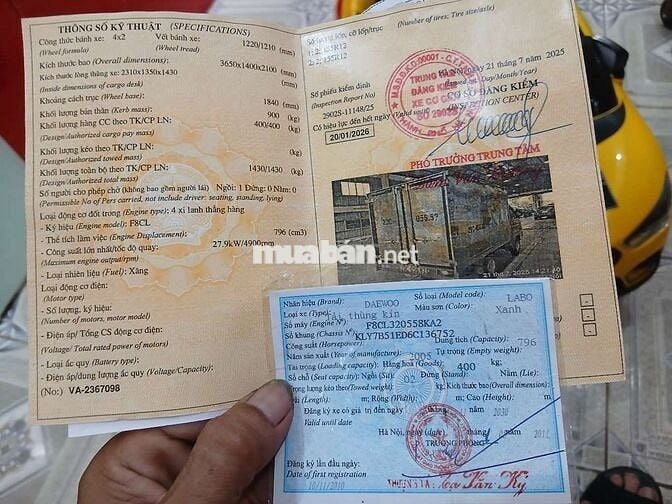 THÔNG SỐ KỸ THUẬT (SPECIFICATIONS)
Công thức bánh xe: 4x2 Vết bánh xe: 1220/1210 (mm)
(Wheel formula) (Wheel tread)
Kích thước bao (Overall dimensions): 3650x1400x2100 (mm)
Kích thước lòng thùng xe: 2310x1350x1430
(Inside dimensions of cargo desk) (mm)
Khoảng cách trục (Wheel base): 1840 (mm)
Khối lượng bản thân (Kerb mass): 900 (kg)
Khối lượng hàng CC theo TK/CP LN: 400/400 (kg)
(Design/Authorized cargo pay mass)
Khối lượng kéo theo TK/CP LN: (kg)
(Design/Authorized towed mass)
Khối lượng toàn bộ theo TK/CP LN: 1430/1430 (kg)
(Design/Authorized total mass)
Số người cho phép chở (không bao gồm người lái) Ngồi: 1 Đứng: 0 Nằm: 0
(Permissible No of Pers carried, not include driver: seating, standing, lying)
Loại động cơ đốt trong (Engine type): 4 xi lanh thẳng hàng
- Ký hiệu (Engine model): F8CL
- Thể tích làm việc (Engine Displacement): 796 (cm3)
- Công suất lớn nhất/tốc độ quay: 27.9kW/4900rpm
(Maximum engine output/rpm)
- Loại nhiên liệu (Fuel): Xăng
Loại động cơ điện:
(Motor type)
- Số lượng, ký hiệu:
(Number of motors, motor model)
- Điện áp/ Tổng CS động cơ điện:
(Voltage/ Total rated power of motors)
- Loại ắc quy (Battery type):
- Điện áp/dung lượng ắc quy (Voltage/Capacity):
(No:) VA-2367098
Số lượng lốp, cỡ lốp/trục
(Number of tires; Tire size/axle)
1: 2; 155R12
2: 2; 155R12
Số phiếu kiểm định
(Inspection Report No)
29025-11148/25
Hà Nội, ngày 21 tháng 7 năm 2025
CƠ SỞ ĐĂNG KIỂM
(INSPECTION CENTER)
Có hiệu lực đến hết ngày
20/01/2026
TRUNG TÂM
ĐĂNG KIỂM
XE CƠ GIỚI
PHÓ TRƯỞNG TRUNG TÂM
muaban.net
Nhãn hiệu (Brand): DAEWOO Số loại (Model code): LABO
Loại xe (Type): Tải thùng kín Màu sơn (Color): Xanh
Số máy (Engine N°): F8CL320558KA2
Số khung (Chassis N°): KLY7B51ED6C136752
Công suất (Horsepower): Dung tích (Capacity): 796
Năm sản xuất (Year of manufacture): 2005 Tự trọng (Empty weight):
Tải trọng (Loading capacity): Hàng hóa (Goods): 400
Số chỗ (Seat capacity): Ngồi (Sit): 02 Đứng (Stand): Nằm (Lie):
Trọng lượng kéo theo (Towed weight): Kích thước bao (Overall dimension):
Dài (Length): m; Rộng (Width): m; Cao (Height): m
Đăng ký xe có giá trị đến ngày năm 2030
Valid until
Hà Nội, ngày (date) tháng năm
TRƯỞNG PHÒNG
Đăng ký lần đầu ngày:
Date of first registration
10/11/2010